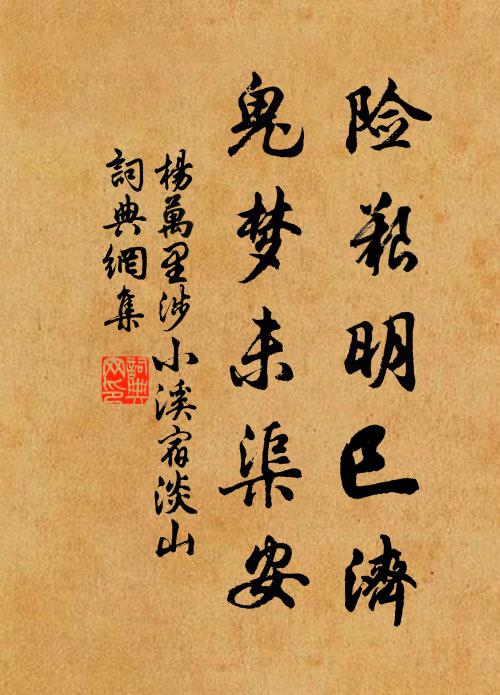 险艱明已濟
鬼梦未渠安
楊萬里涉小溪宿淡山
詞典網集
詞典网印